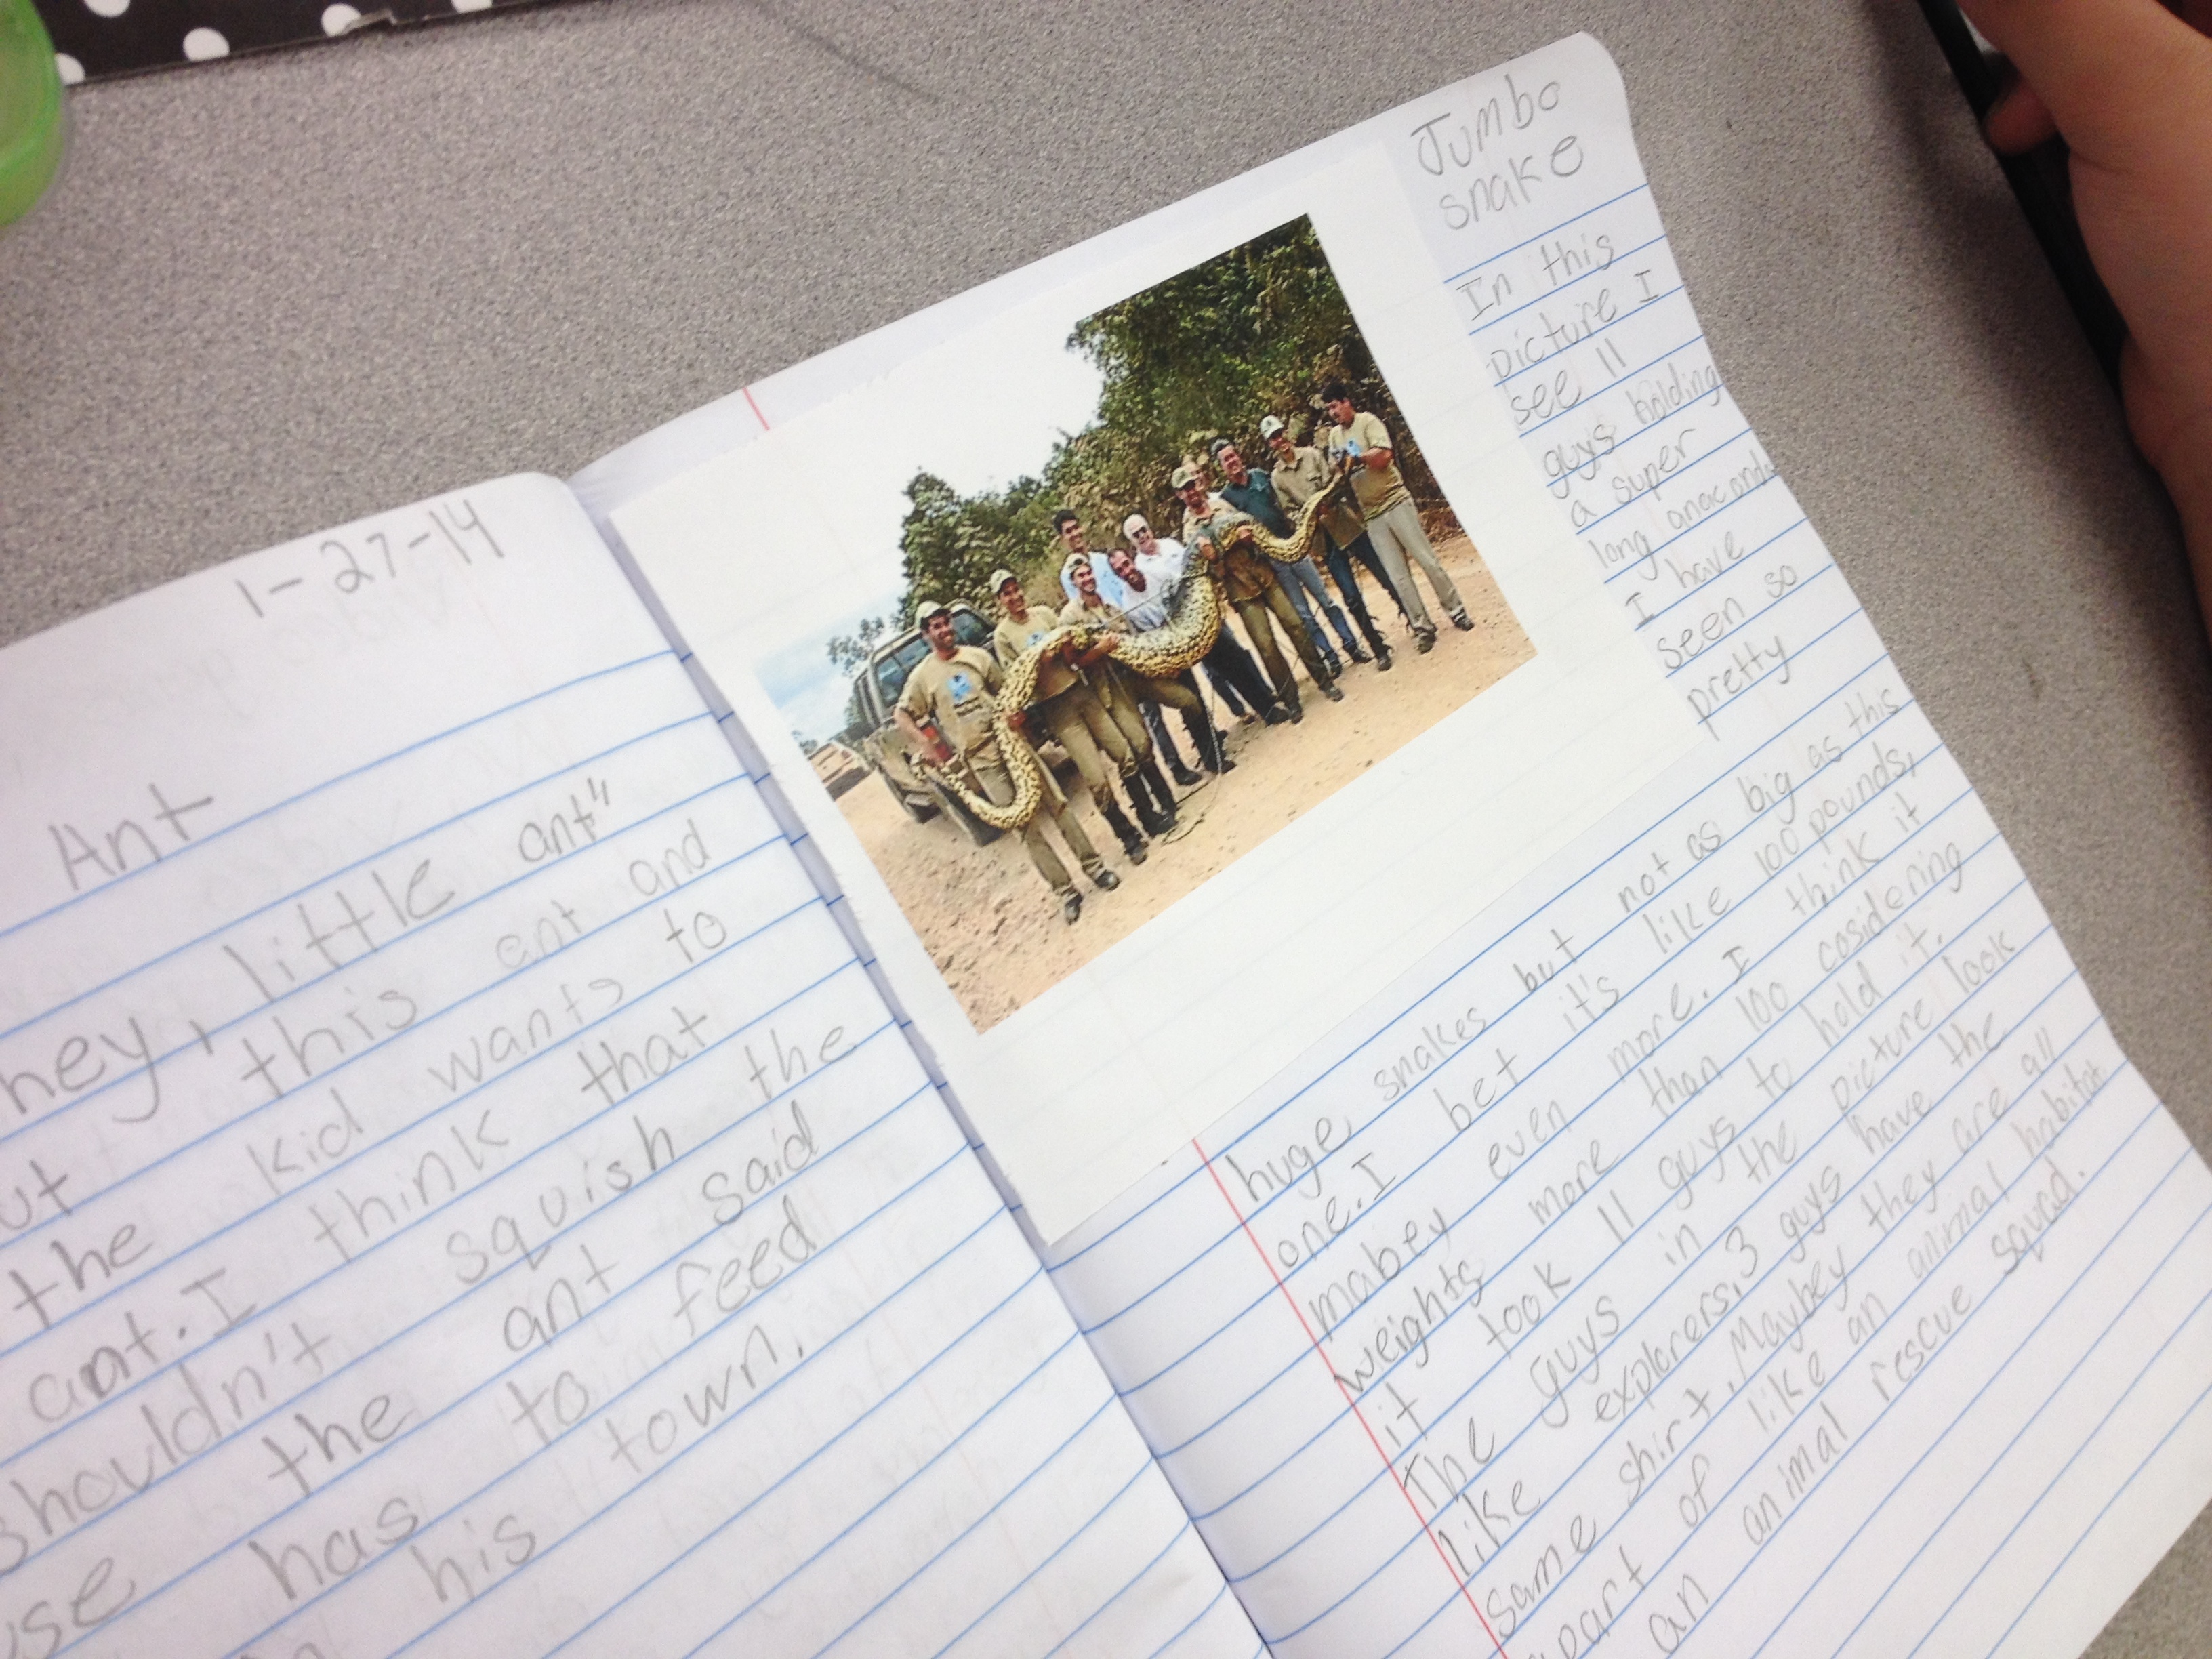 1-27-14
Ant
hey, little ant"
this ant and
the kid wants to
ant. I think that
shouldn't squish the
the ant said
has to feed
his town.
Jumbo
snake
In this
picture I
see 11
guys holding
a super
long anaconda
I have
seen so
pretty
huge snakes but not as big as this
one. I bet it's like 100 pounds,
mabey even more. I think it
weights more than 100 cosidering
it took 11 guys to hold it.
The guys in the picture look
like explorers. 3 guys have the
same shirt. Maybey they are all
part of like an animal habitat
an animal rescue squad.